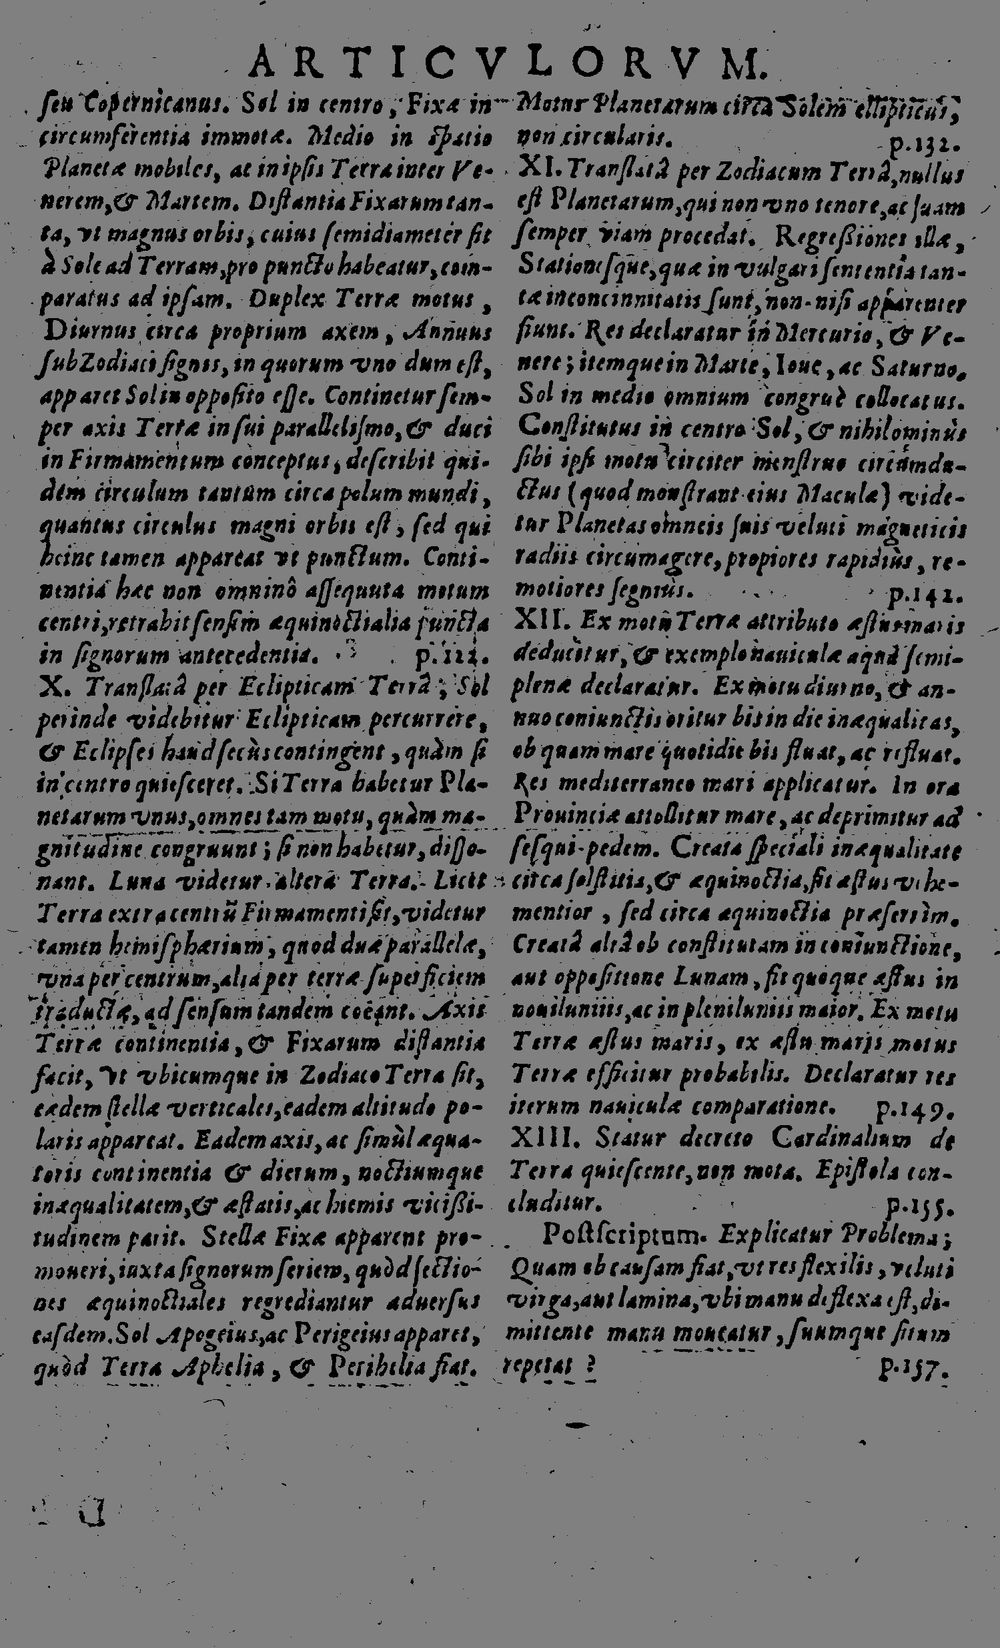 ARTICVLORVM.
ſeu Copernicanus. Sol in centro, Fixæ in
circumferentia immotæ. Medio in ſpatio
Planetæ mobiles, ac in ipſis Terra inter Ve-
nerem, & Martem. Diſtantia Fixarum tan-
ta, vt magnus orbis, cuius ſemidiameter ſit
à Sole ad Terram, pro puncto habeatur, com-
paratus ad ipſam. Duplex Terræ motus,
Diurnus circa proprium axem, Annuus
ſub Zodiaci ſignis, in quorum vno dum eſt,
apparet Sol in oppoſito eſſe. Continetur ſem-
per axis Terræ in ſui paralleliſmo, & duci
in Firmamentum conceptus, deſcribit qui-
dem circulum tantum circa polum mundi,
quantus circulus magni orbis eſt, ſed qui
heinc tamen appareat vt punctum. Conti-
nentia hæc non omninò aſſequuta motum
centri, retrahit ſenſim æquinoctialia puncta
in ſignorum antecedentia. p.122.
X. Tranſlatâ per Eclipticam Terrâ, Sol
perinde videbitur Eclipticam percurrere,
& Eclipſes haud ſecùs contingent, quàm ſi
in centro quieſceret. Si Terra habetur Pla-
netarum vnus, omnes tam motu, quàm ma-
gnitudine congruunt; ſi non habetur, diſſo-
nant. Luna videtur altera Terra. Licèt
Terra extra centrũ Firmamenti ſit, videtur
tamen hemiſphærium, quod duæ parallelæ,
vna per centrum, alia per terræ ſuperficiem
traductæ, ad ſenſum tandem coëant. Axis
Terræ continentia, & Fixarum diſtantia
facit, vt vbicumque in Zodiaco Terra ſit,
eædem ſtellæ verticales, eadem altitudo po-
laris appareat. Eadem axis, ac ſimùl æqua-
toris continentia & dierum, noctiumque
inæqualitatem, & æſtatis, ac hiemis viciſſi-
tudinem parit. Stellæ Fixæ apparent pro-
moueri, iuxta ſignorum ſeriem, quòd ſectio-
nes æquinoctiales regrediantur aduerſus
eaſdem. Sol Apogeius, ac Perigeius apparet,
quòd Terra Aphelia, & Perihelia fiat.
Motus Planetarum circa Solem ellipticus,
non circularis. p.132.
XI. Tranſlatâ per Zodiacum Terrâ, nullus
eſt Planetarum, qui non vno tenore, ac ſuam
ſemper viam procedat. Regreſſiones illæ,
Stationeſque, quæ in vulgari ſententia tan-
tæ inconcinnitatis ſunt, non-niſi apparenter
fiunt. Res declaratur in Mercurio, & Ve-
nere; itemque in Marte, Ioue, ac Saturno.
Sol in medio omnium congruè collocatus.
Conſtitutus in centro Sol, & nihilominùs
ſibi ipſi motu circiter menſtruo circumdu-
ctus (quod monſtrant eius Maculæ) vide-
tur Planetas omneis ſuis veluti magneticis
radiis circumagere, propiores rapidiùs, re-
motiores ſegniùs. p.142.
XII. Ex motu Terræ attributo æſtus maris
deducitur, & exemplo nauiculæ aquâ ſemi-
plenæ declaratur. Ex motu diurno, & an-
nuo coniunctis oritur bis in die inæqualitas,
ob quam mare quotidie bis fluat, ac refluat.
Res mediterraneo mari applicatur. In ora
Prouinciæ attollitur mare, ac deprimitur ad
ſeſqui-pedem. Creata ſpeciali inæqualitate
circa ſolſtitia, & æquinoctia, fit æſtus vehe-
mentior, ſed circa æquinoctia præſertim.
Creatâ aliâ ob conſtitutam in coniunctione,
aut oppoſitione Lunam, fit quoque æſtus in
nouiluniis, ac in pleniluniis maior. Ex motu
Terræ æſtus maris, ex æſtu maris motus
Terræ efficitur probabilis. Declaratur res
iterum nauiculæ comparatione. p.149.
XIII. Statur decreto Cardinalium de
Terra quieſcente, non mota. Epiſtola con-
cluditur. p.155.
Poſtſcriptum. Explicatur Problema;
Quam ob cauſam fiat, vt res flexilis, veluti
virga, aut lamina, vbi manu deflexa eſt, di-
mittente manu moueatur, ſuumque ſitum
repetat? p.157.